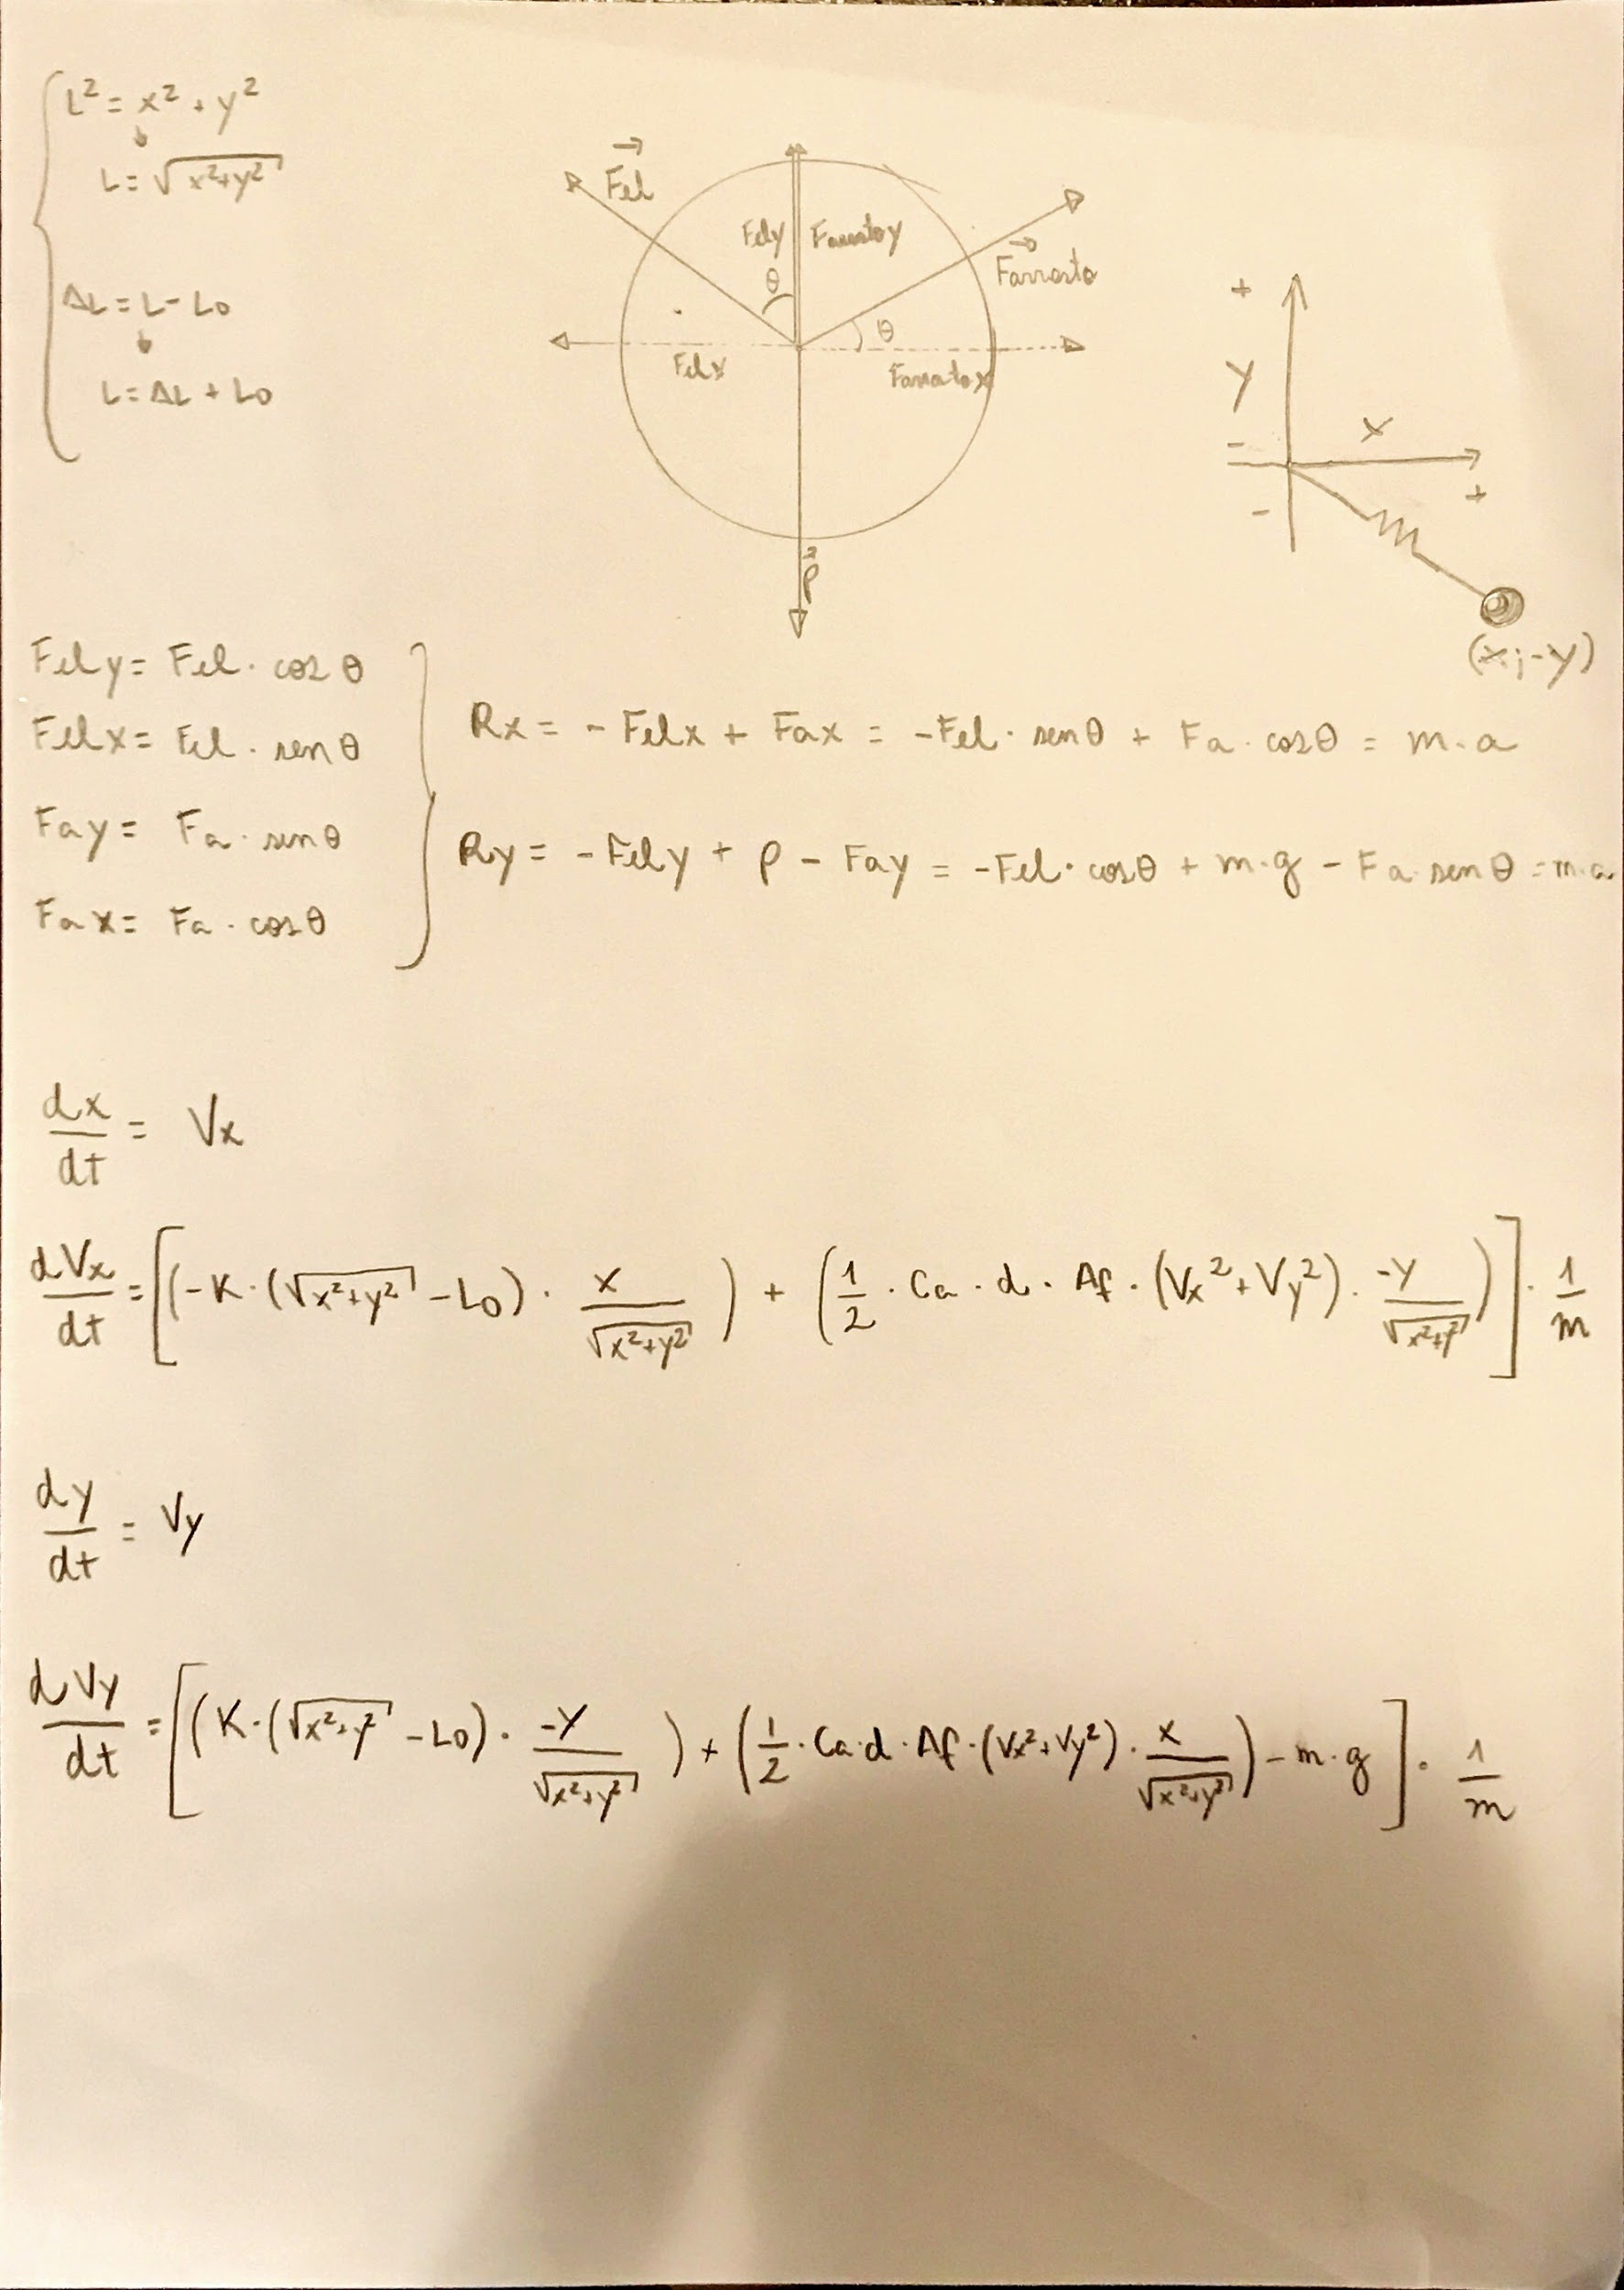 L² = x² + y²
L = √(x²+y²)
ΔL = L - L0
L = ΔL + L0
Fel
Fely
Farrastoy
Farrasto
θ
θ
Felx
Farrastox
P
+
y
-
x
+
-
(x; -y)
Fely = Fel · cos θ
Felx = Fel · sen θ
Fay = Fa · sen θ
Fax = Fa · cos θ
Rx = - Felx + Fax = -Fel · senθ + Fa · cosθ = m · a
Ry = - Fely + P - Fay = -Fel · cosθ + m · g - Fa · senθ = m · a
dx/dt = Vx
dVx/dt = [(-K · (√(x²+y²) - L0) · x/√(x²+y²)) + (1/2 · Ca · d · Af · (Vx² + Vy²) · -y/√(x²+y²))] · 1/m
dy/dt = Vy
dVy/dt = [(K · (√(x²+y²) - L0) · -y/√(x²+y²)) + (1/2 · Ca · d · Af · (Vx² + Vy²) · x/√(x²+y²)) - m · g] · 1/m